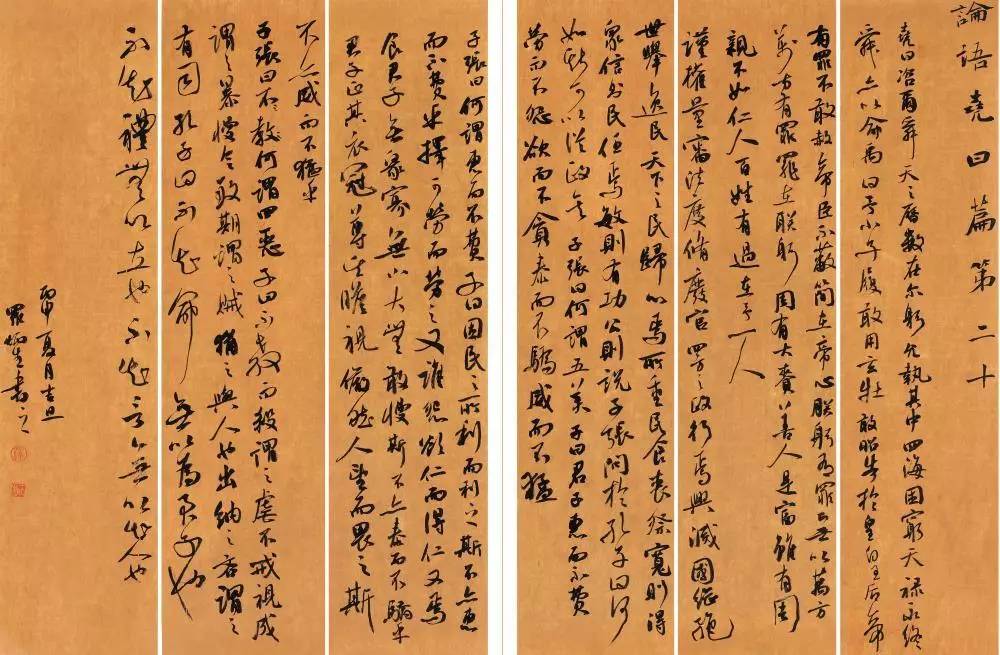 論語堯曰篇第二十
堯曰咨爾舜天之曆數在尔躬允執其中四海困窮天祿永終
舜亦以命禹曰予小子履敢用玄牡敢昭告於皇皇后帝
有罪不敢赦帝臣不蔽簡在帝心朕躬有罪無以萬方
萬方有罪罪在朕躬周有大賚善人是富雖有周
親不如仁人百姓有過在予一人
謹權量審法度脩廢官四方之政行焉興滅國繼絕
世舉逸民天下之民歸心焉所重民食喪祭寬則得
眾信則民任焉敏則有功公則說子張問於孔子曰何
如斯可以從政矣子張曰何謂五美子曰君子惠而不費
勞而不怨欲而不貪泰而不驕威而不猛
子張曰何謂惠而不費子曰因民之所利而利之斯不亦惠
而不費乎擇可勞而勞之又誰怨欲仁而得仁又焉
貪君子無眾寡無小大無敢慢斯不亦泰而不驕乎
君子正其衣冠尊其瞻視儼然人望而畏之斯
不亦威而不猛乎
子張曰不教何謂四惡子曰不教而殺謂之虐不戒視成
謂之暴慢令致期謂之賊猶之與人也出納之吝謂之
有司孔子曰不知命無以為君子也
不知禮無以立也不知言無以知人也
丙申夏月吉旦
羅生書之